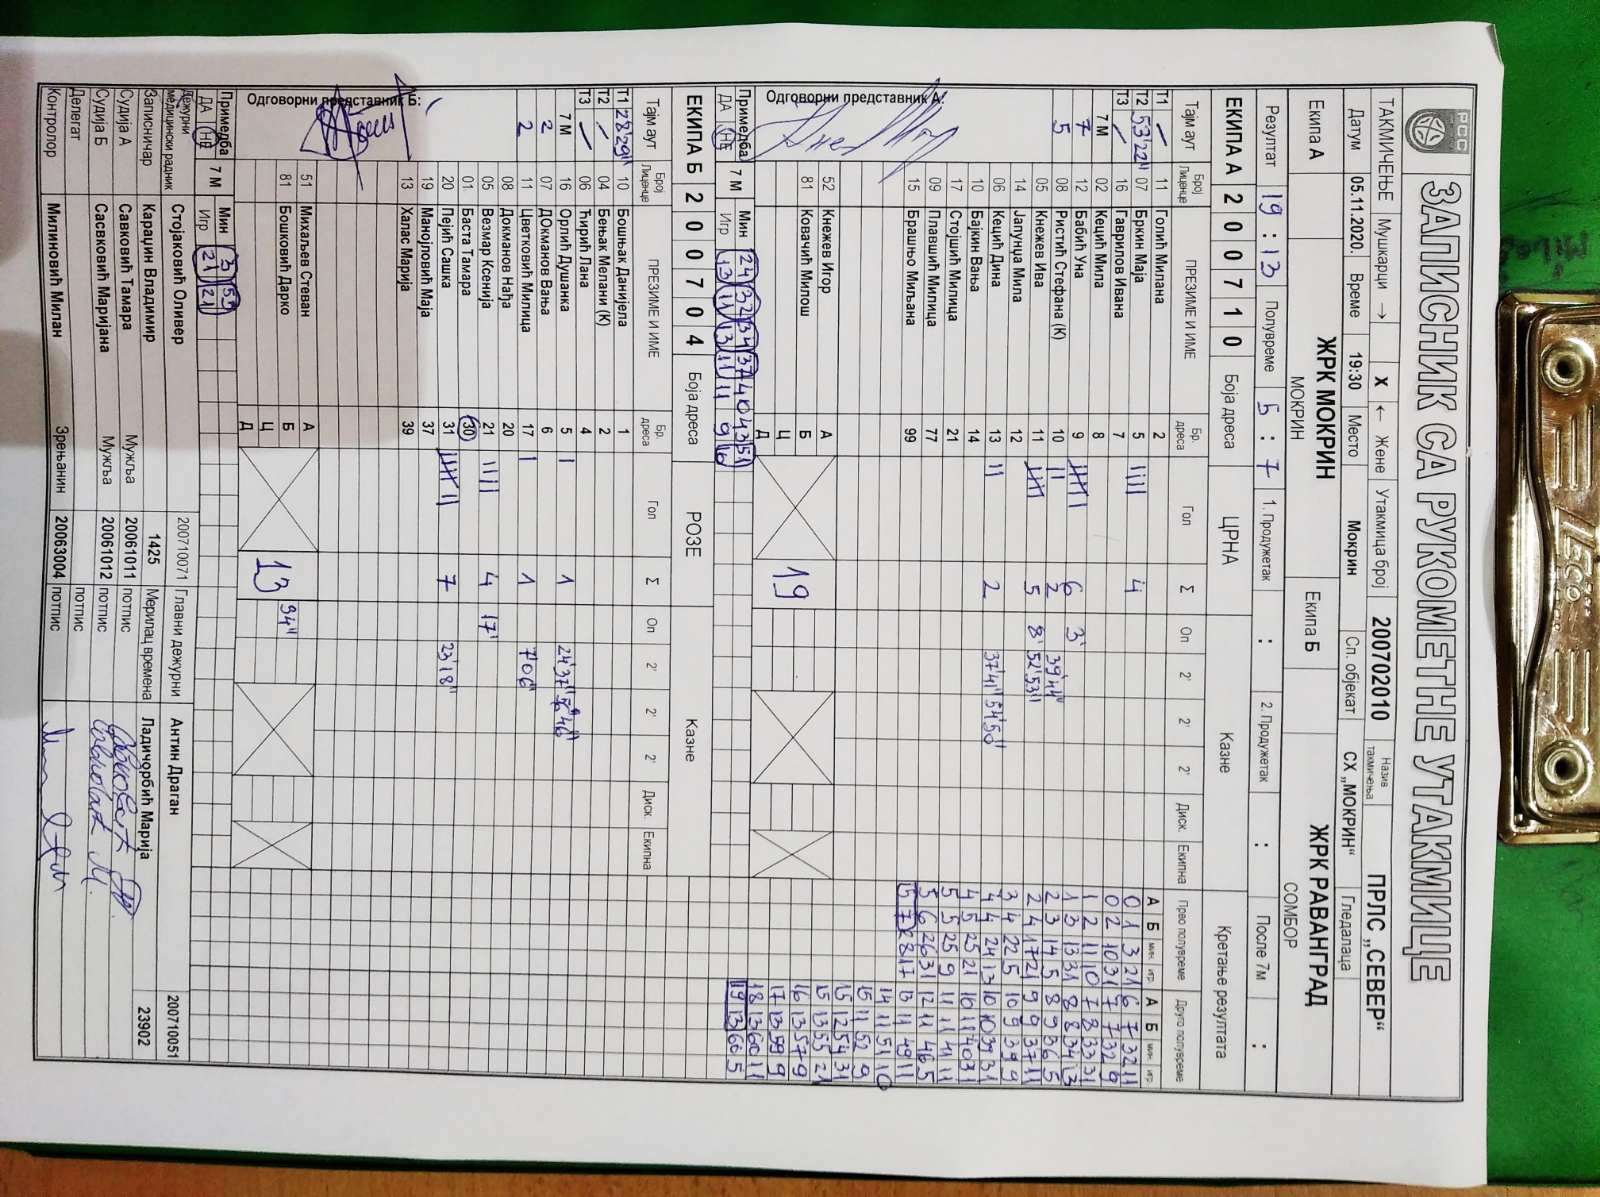 РСС
ЗАПИСНИК СА РУКОМЕТНЕ УТАКМИЦЕ
ТАКМИЧЕЊЕ Мушкарци → X ← Жене Утакмица број 200702010 Назив такмичења ПРЛС „СЕВЕР“
Датум 05.11.2020. Време 19:30 Место Мокрин Сп. објекат СХ „МОКРИН“ Гледалаца
Екипа А ЖРК МОКРИН Екипа Б ЖРК РАВАНГРАД
МОКРИН СОМБОР
Резултат 19 : 13 Полувреме 5 : 7 1. Продужетак : 2. Продужетак : После 7м :
ЕКИПА А 2 0 0 7 1 0 Боја дреса ЦРНА Казне Кретање резултата
Тајм аут Број Лиценце ПРЕЗИМЕ И ИМЕ Бр. дреса Гол Σ Оп 2' 2' 2' Диск. Екипна Прво полувреме Друго полувреме
А Б мин. игр. А Б мин. игр.
Т1 / 11 Голић Милана 2 0 1 3 21 6 7 32 11
Т2 53'22" 07 Бркин Маја 5 IIII 4 0 2 10 31 7 7 32 9
Т3 / 16 Гаврилов Ивана 7 1 2 11 10 7 8 33 31
7 М 02 Кецић Мила 8 1 3 13 31 8 8 34 13
7 12 Бабић Уна 9 6 3' 2 3 14 5 8 9 36 5
5 08 Ристић Стефана (К) 10 II 2 39'44" 2 4 17 21 9 9 37 11
05 Кнежев Ива 11 5 8' 52'53" 3 4 22 5 10 9 39 9
14 Јапунџа Мила 12 4 4 24 13 10 10 39 31
06 Кецић Дина 13 II 2 37'41" 54'50" 4 5 25 21 10 11 40 31
10 Бајкин Вања 14 5 5 25 9 11 11 41 11
17 Стојшић Милица 21 5 6 26 31 12 11 46 5
09 Плавшић Милица 77 5 7 28 17 13 11 49 11
15 Брашњо Миљана 99 14 11 51 10
15 11 52 9
15 12 54 31
52 Кнежев Игор А 19 15 13 55 21
81 Ковачић Милош Б 16 13 57 9
Ц 17 13 59 9
Д 18 13 60 11
19 13 60 5
Одговорни представник А:
Примедба 7 М Мин 24 32 34 37 40 43 51
ДА НЕ Игр 13 11 13 11 11 9 10
ЕКИПА Б 2 0 0 7 0 4 Боја дреса РОЗЕ Казне
Тајм аут Број Лиценце ПРЕЗИМЕ И ИМЕ Бр. дреса Гол Σ Оп 2' 2' 2' Диск. Екипна
Т1 28'29" 10 Бошњак Данијела 1
Т2 / 04 Бењак Мелани (К) 2
Т3 / 06 Ћирић Лана 4
7 М 16 Орлић Душанка 5 I 1 24'37"
2 07 Докманов Вања 6
2 11 Цветковић Милица 17 I 1 7'06"
08 Докманов Нађа 20
05 Везмар Ксенија 21 IIII 4 17'
01 Баста Тамара 30
20 Пејић Сашка 31 7 23'18"
19 Манојловић Маја 37
13 Халас Марија 39
51 Михаљев Стеван А 13
81 Бошковић Дарко Б 34"
Ц
Д
Одговорни представник Б:
Примедба 7 М Мин 3 55
ДА НЕ Игр 21 21
Дежурни медицински радник Стојаковић Оливер 200710071 Главни дежурни Антин Драган 200710051
Записничар Караџин Владимир 1425 Мерилац времена Ладичорбић Марија 23902
Судија А Савковић Тамара Мужља 20061011 потпис
Судија Б Сасвковић Маријана Мужља 20061012 потпис
Делегат потпис
Контролор Милиновић Милан Зрењанин 20063004 потпис